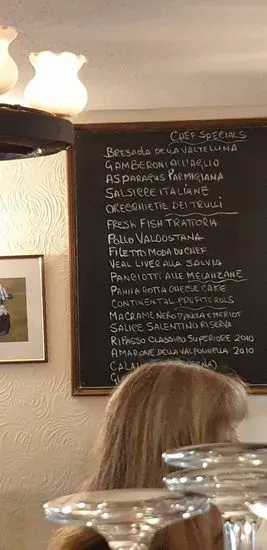 CHEF SPECIALS
BRESAOLA DELLA VALTELLINA
GAMBERONI ALL'AGLIO
ASPARAGUS PARMIGIANA
SALSICCE ITALIANE
ORECCHIETTE DEI TRULLI
FRESH FISH TRATTORIA
POLLO VALDOSTANA
FILETTO MODA DU CHEF
VEAL LIVER ALLA SALVIA
PANCIOTTI ALLE MELANZANE
PANNA COTTA CHEESE CAKE
CONTINENTAL PROFITEROLS
NERO D'AVOLA E MERLOT
SALICE SALENTINO RISERVA
RIPASSO CLASSICO SUPERIORE 2010
AMARONE DELLA VALPOLICELLA 2010